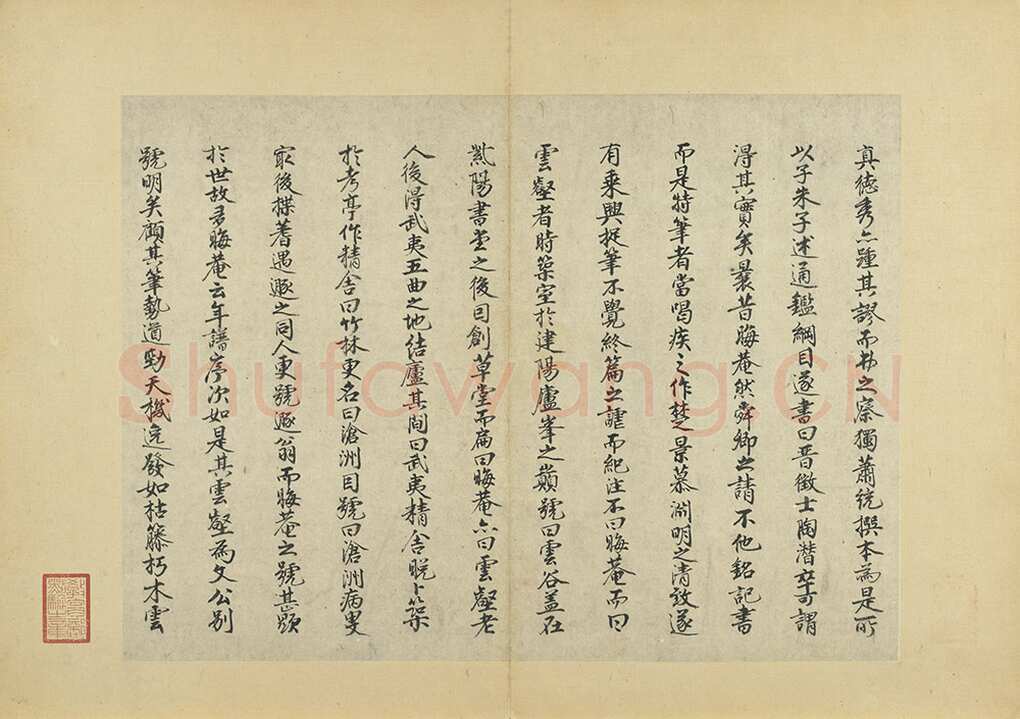 真德秀亦踵其謬而書之察獨蕭統撰本為是所
以子朱子述通鑑綱目遂書曰晉徵士陶潛卒可謂
淂其實矣曩昔晦菴然舜卿之請不他銘記書
而是特筆者當唱疾之作楚景慕淵明之清致遂
有乘興捉筆不覺終篇之謔而紀注不曰晦菴而曰
雲壑者時築室於建陽廬峯之巔號曰雲谷蓋在
紫陽書堂之後曰創草堂而扁曰晦菴亦曰雲壑老
人後得武夷五曲之地結廬其間曰武夷精舍晚卜築
於考亭作精舍曰竹林更名曰滄洲因號曰滄洲病叟
最後揲蓍遇遯之同人更號遯翁而晦菴之號甚顯
於世故多晦菴云年譜序次如是其雲壑為文公別
號明矣顧其筆勢遒勁天機逸發如枯藤朽木雲
Shufawang.CN